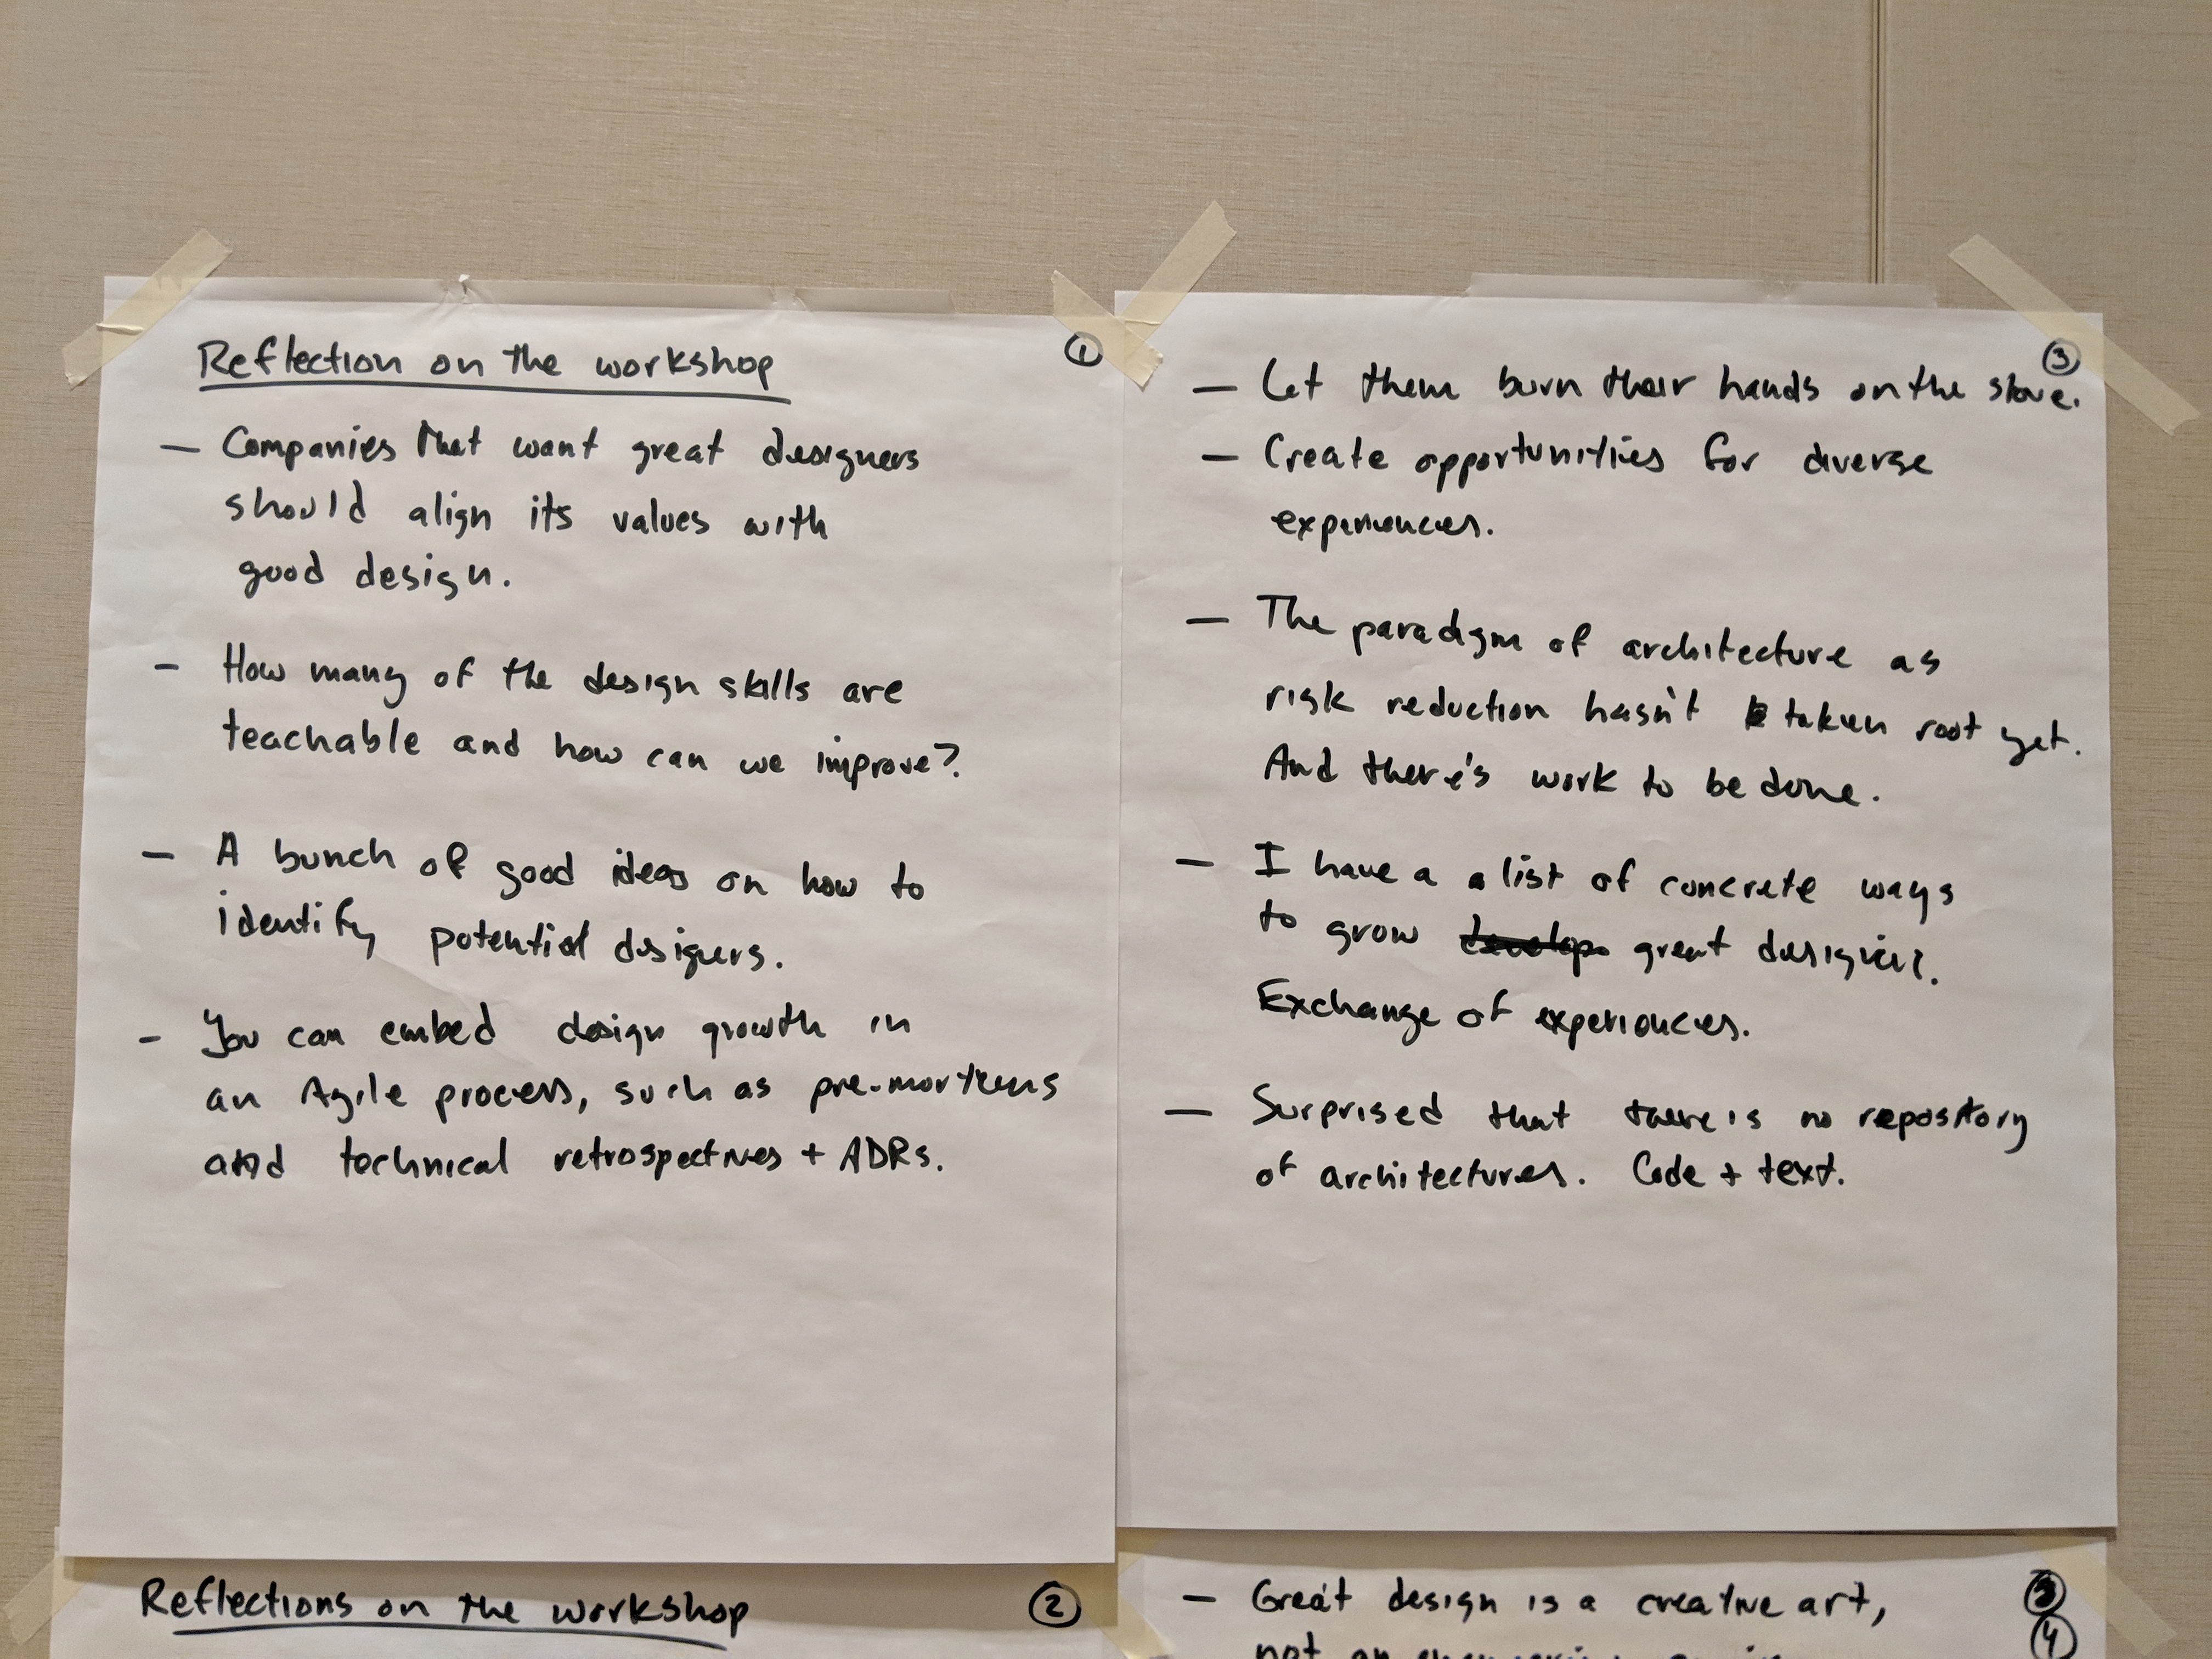 Reflection on the workshop
①
— Companies that want great designers
should align its values with
good design.
- How many of the design skills are
teachable and how can we improve?
— A bunch of good ideas on how to
identify potential desigers.
- You can embed design growth in
an Agile process, such as pre-mortems
and technical retrospectives + ADRs.
③
— Let them burn their hands on the stove.
— Create opportunities for diverse
experiences.
— The paradigm of architecture as
risk reduction hasn't taken root yet.
And there's work to be done.
— I have a a list of concrete ways
to grow develop great designers.
Exchange of experiences.
— Surprised that there is no repository
of architectures. Code + text.
Reflections on the workshop
②
— Great design is a creative art,
③
④
not an